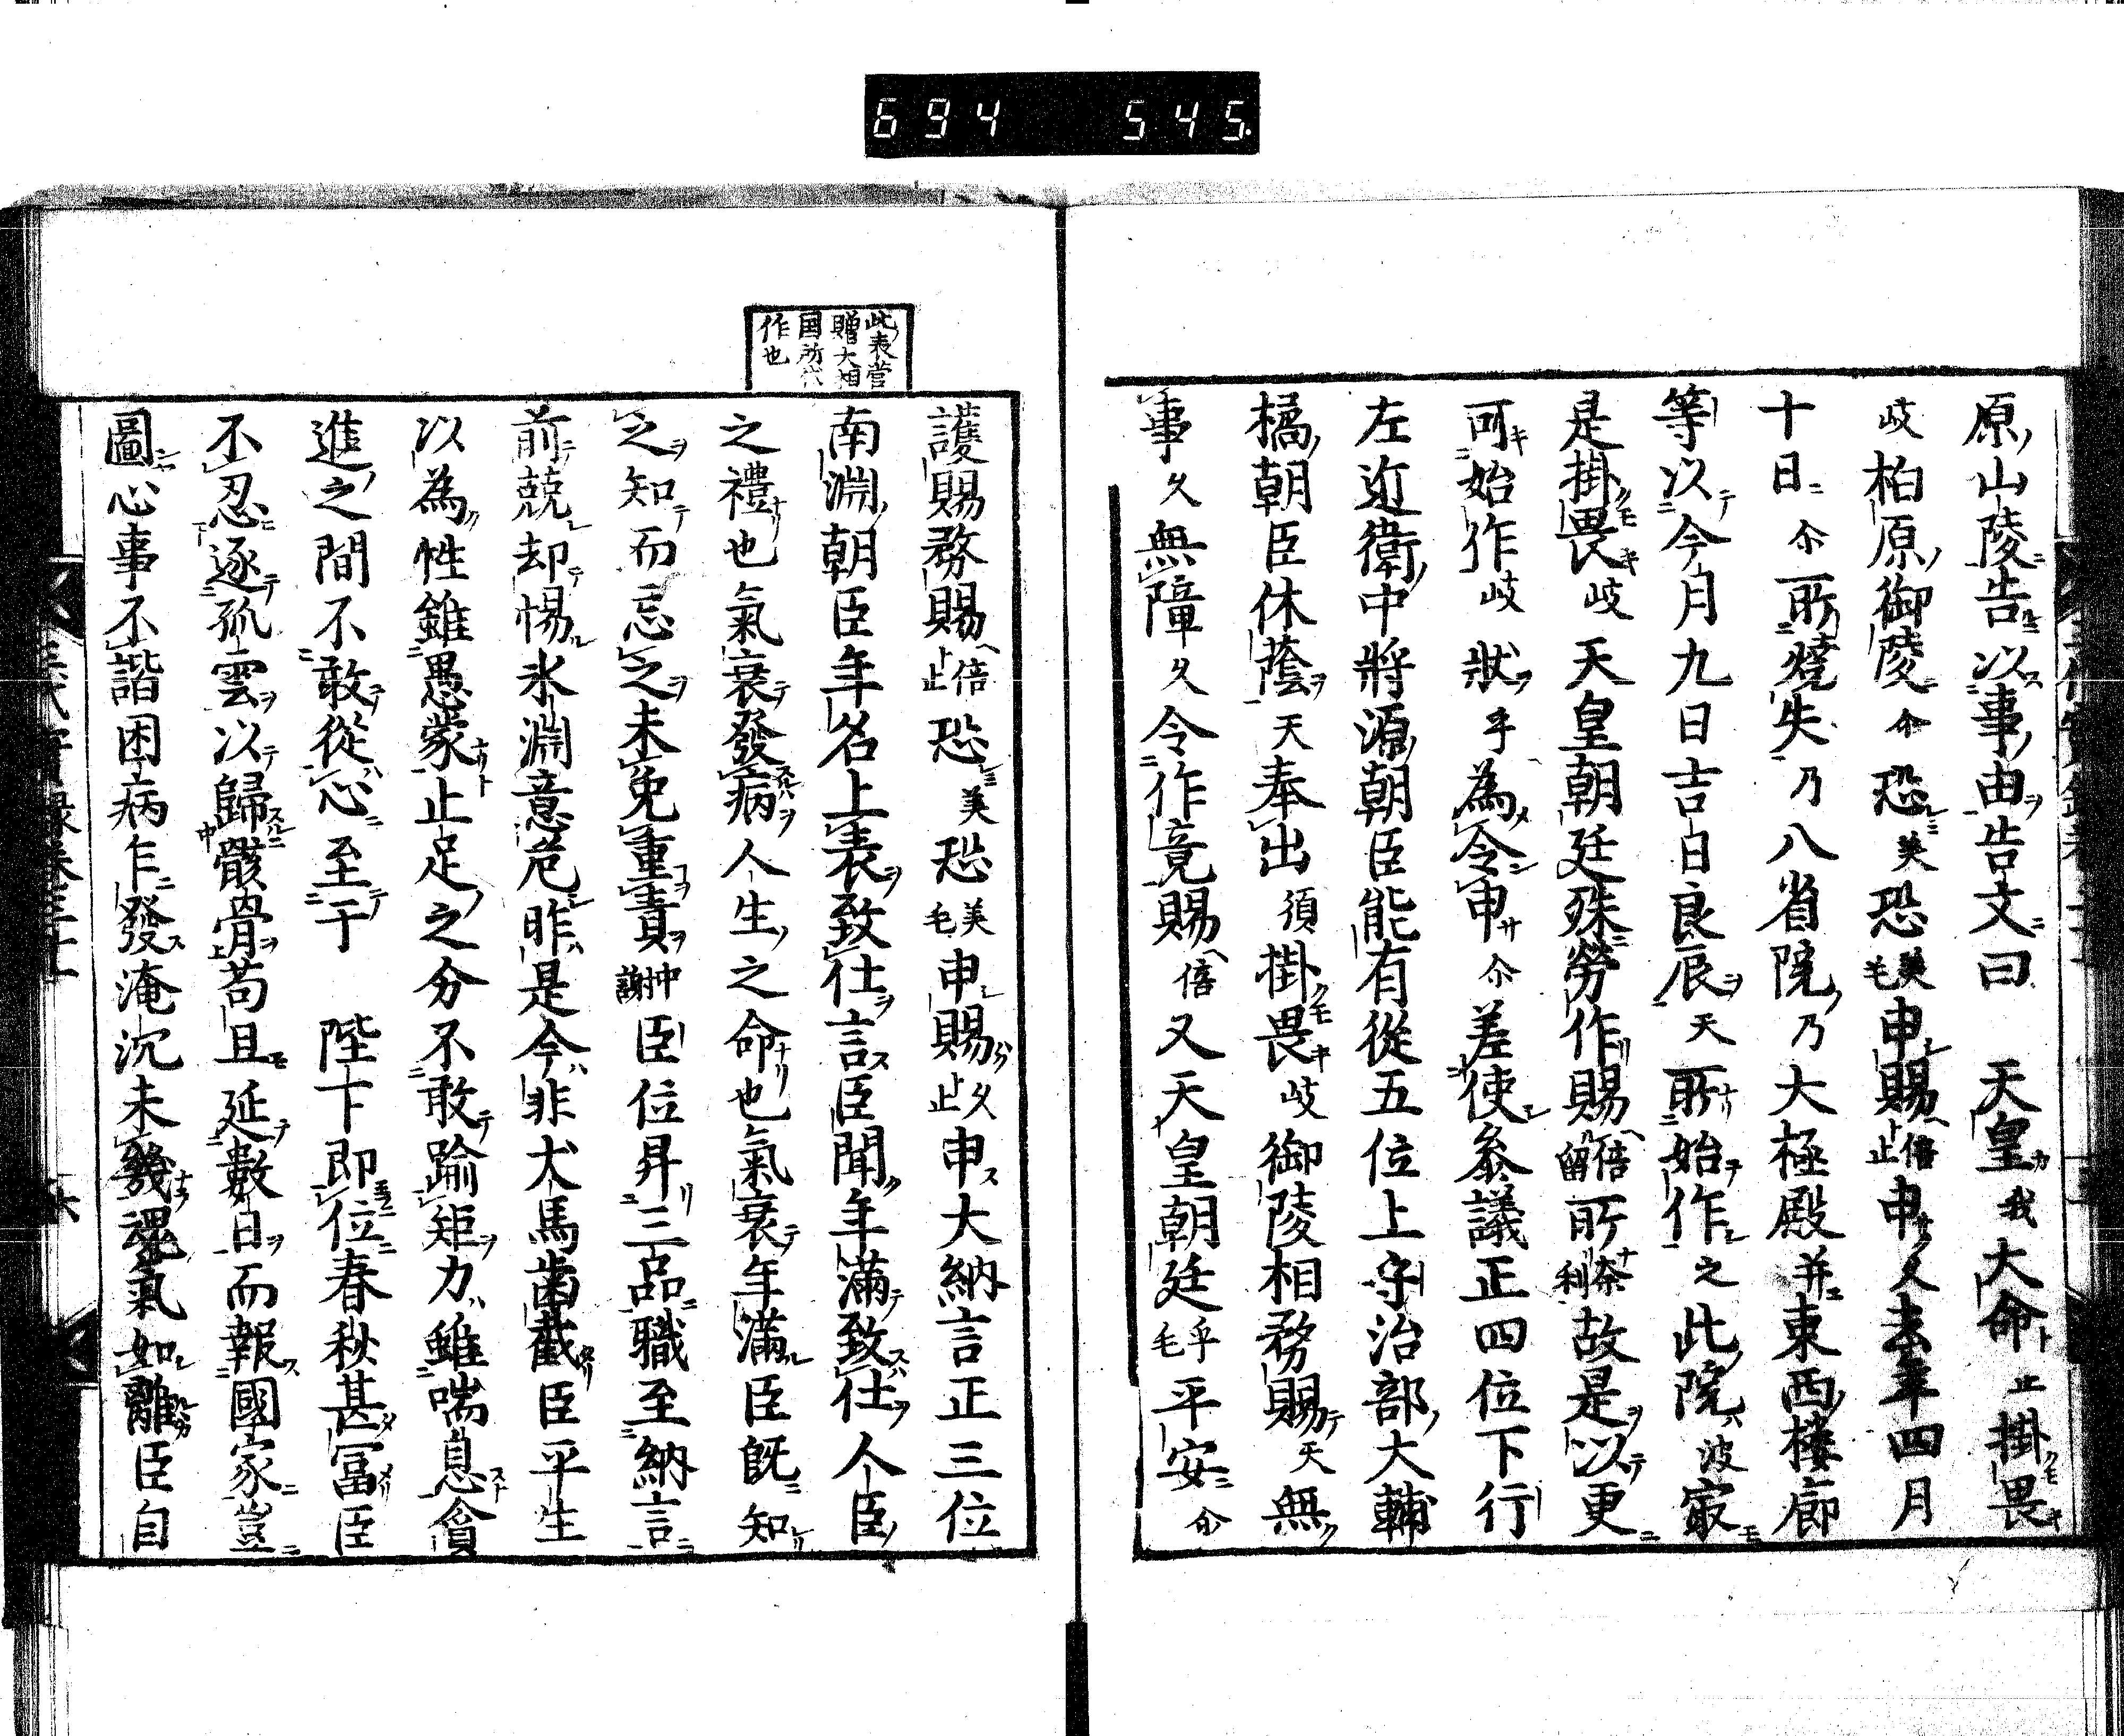 694 545.
原山陵告以事由告文曰 天皇我大命止掛畏
岐柏原御陵尒恐美恐美毛申賜倍止申久去年四月
十日尒所燒失乃八省院乃大極殿并東西樓廊
等以今月九日吉日良辰天所始作之此院波寂
是掛畏岐天皇朝廷殊勞作賜倍留所奈利故是以更
可始作岐狀乎為令申尒差使叅議正四位下行
左近衛中將源朝臣能有從五位上守治部大輔
橘朝臣休蔭天奉出須掛畏岐御陵相務賜天無
事久無障久令作竟賜倍又天皇朝廷乎毛平安尒
護賜務賜倍止恐美恐美毛申賜久止申大納言正三位
南淵朝臣年名上表致仕言臣聞年滿致仕人臣
之禮也氣衰發病人生之命也氣衰年滿臣既知
之知而忘之未免重責中謝臣位昇三品職至納言
前兢却惕氷淵意危昨是今非犬馬齒截臣平生
以為性雖愚蒙止足之分不敢踰矩力雖喘息貪
進之間不敢從心至于 陛下即位春秋甚富臣
不忍逐孤雲以歸骸骨苟且延數日而報國家豈
圖心事不諧困病乍發淹沉未幾魂氣如離臣自
此表菅
贈大相
国所代
作也